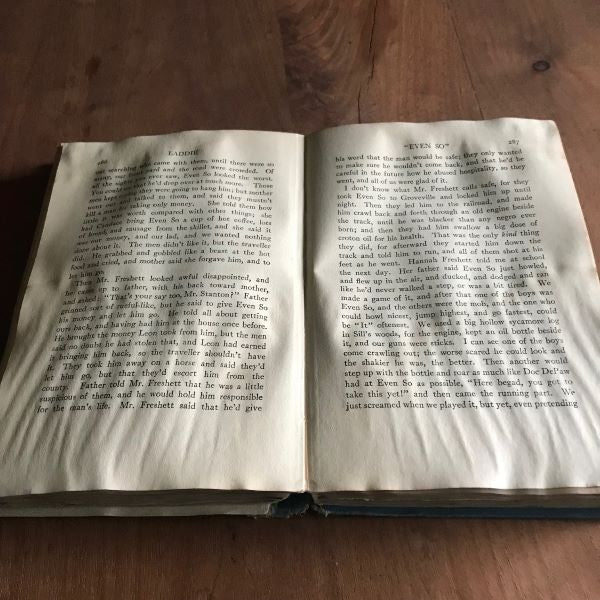 286 LADDIE
searching who came with them, until there were so
many, our yard and the road were crowded. Of
all the sights you ever saw, Even So looked the worst.
You could see that he'd drop over at much more. Those
men kept they were going to hang him; but mother
went out and talked to them, and said they mustn't
kill a man for taking only money. She told them how
little it was worth compared with other things; she
had Candace bring Even So a cup of hot coffee, lots
of bread, and sausage from the skillet, and she said it
was our money, and our lad, and we wanted nothing
done about it. The men didn't like it, but the traveller
did. He grabbed and gobbled like a beast at the hot
food and cried, and mother said she forgave him, and to
let him go.
Then Mr. Freshett looked awful disappointed, and
he came up to father, with his back toward mother
and asked: "That's your say too, Mr. Stanton?" Father
grinned sort of rueful-like, but he said to give Even So
his money and let him go. He told all about getting
ours back, and having had him at the house once before.
He brought the money Leon took from him, but the men
said no doubt he had stolen that, and Leon had earned
it bringing him back, so the traveller shouldn't have
it. They took him away on a horse and said they'd
let him go, but that they'd escort him from the
county. Father told Mr. Freshett that he was a little
suspicious of them, and he would hold him responsible
for the man's life. Mr. Freshett said that he'd give
"EVEN SO" 287
his word that the man would be safe; they only wanted
to make sure he wouldn't come back, and that he'd be
careful in the future how he abused hospitality, so they
went, and all of us were glad of it.
I don't know what Mr. Freshett calls safe, for they
took Even So to Groveville and locked him up until
night. Then they led him to the railroad, and made
him crawl back and forth through an old engine beside
the track, until he was blacker than any negro ever
born; and then they had him swallow a big dose of
croton oil for his health. That was the only kind thing
they did, for afterward they started him down the
track and told him to run, and all of them shot at his
feet as he went. Hannah Freshett told me at school
the next day. Her father said Even So just howled,
and flew up in the air, and ducked, and dodged and ran
like he'd never walked a step, or was a bit tired. We
made a game of it, and after that one of the boys was
Even So, and the others were the mob, and the one who
could howl nicest, jump highest, and go fastest, could
be "It" oftenest. We used a big hollow sycamore log
in Sill's woods, for the engine, kept an oil bottle beside
it, and our guns were sticks. I can see one of the boys
come crawling out; the worse scared he could look and
the shakier he was, the better. Then another would
step up with the bottle and roar as much like Doc DePaw
had at Even So as possible, "Here begad, you got to
take this yet!" and then came the running part. We
just screamed when we played it, but yet, even pretending